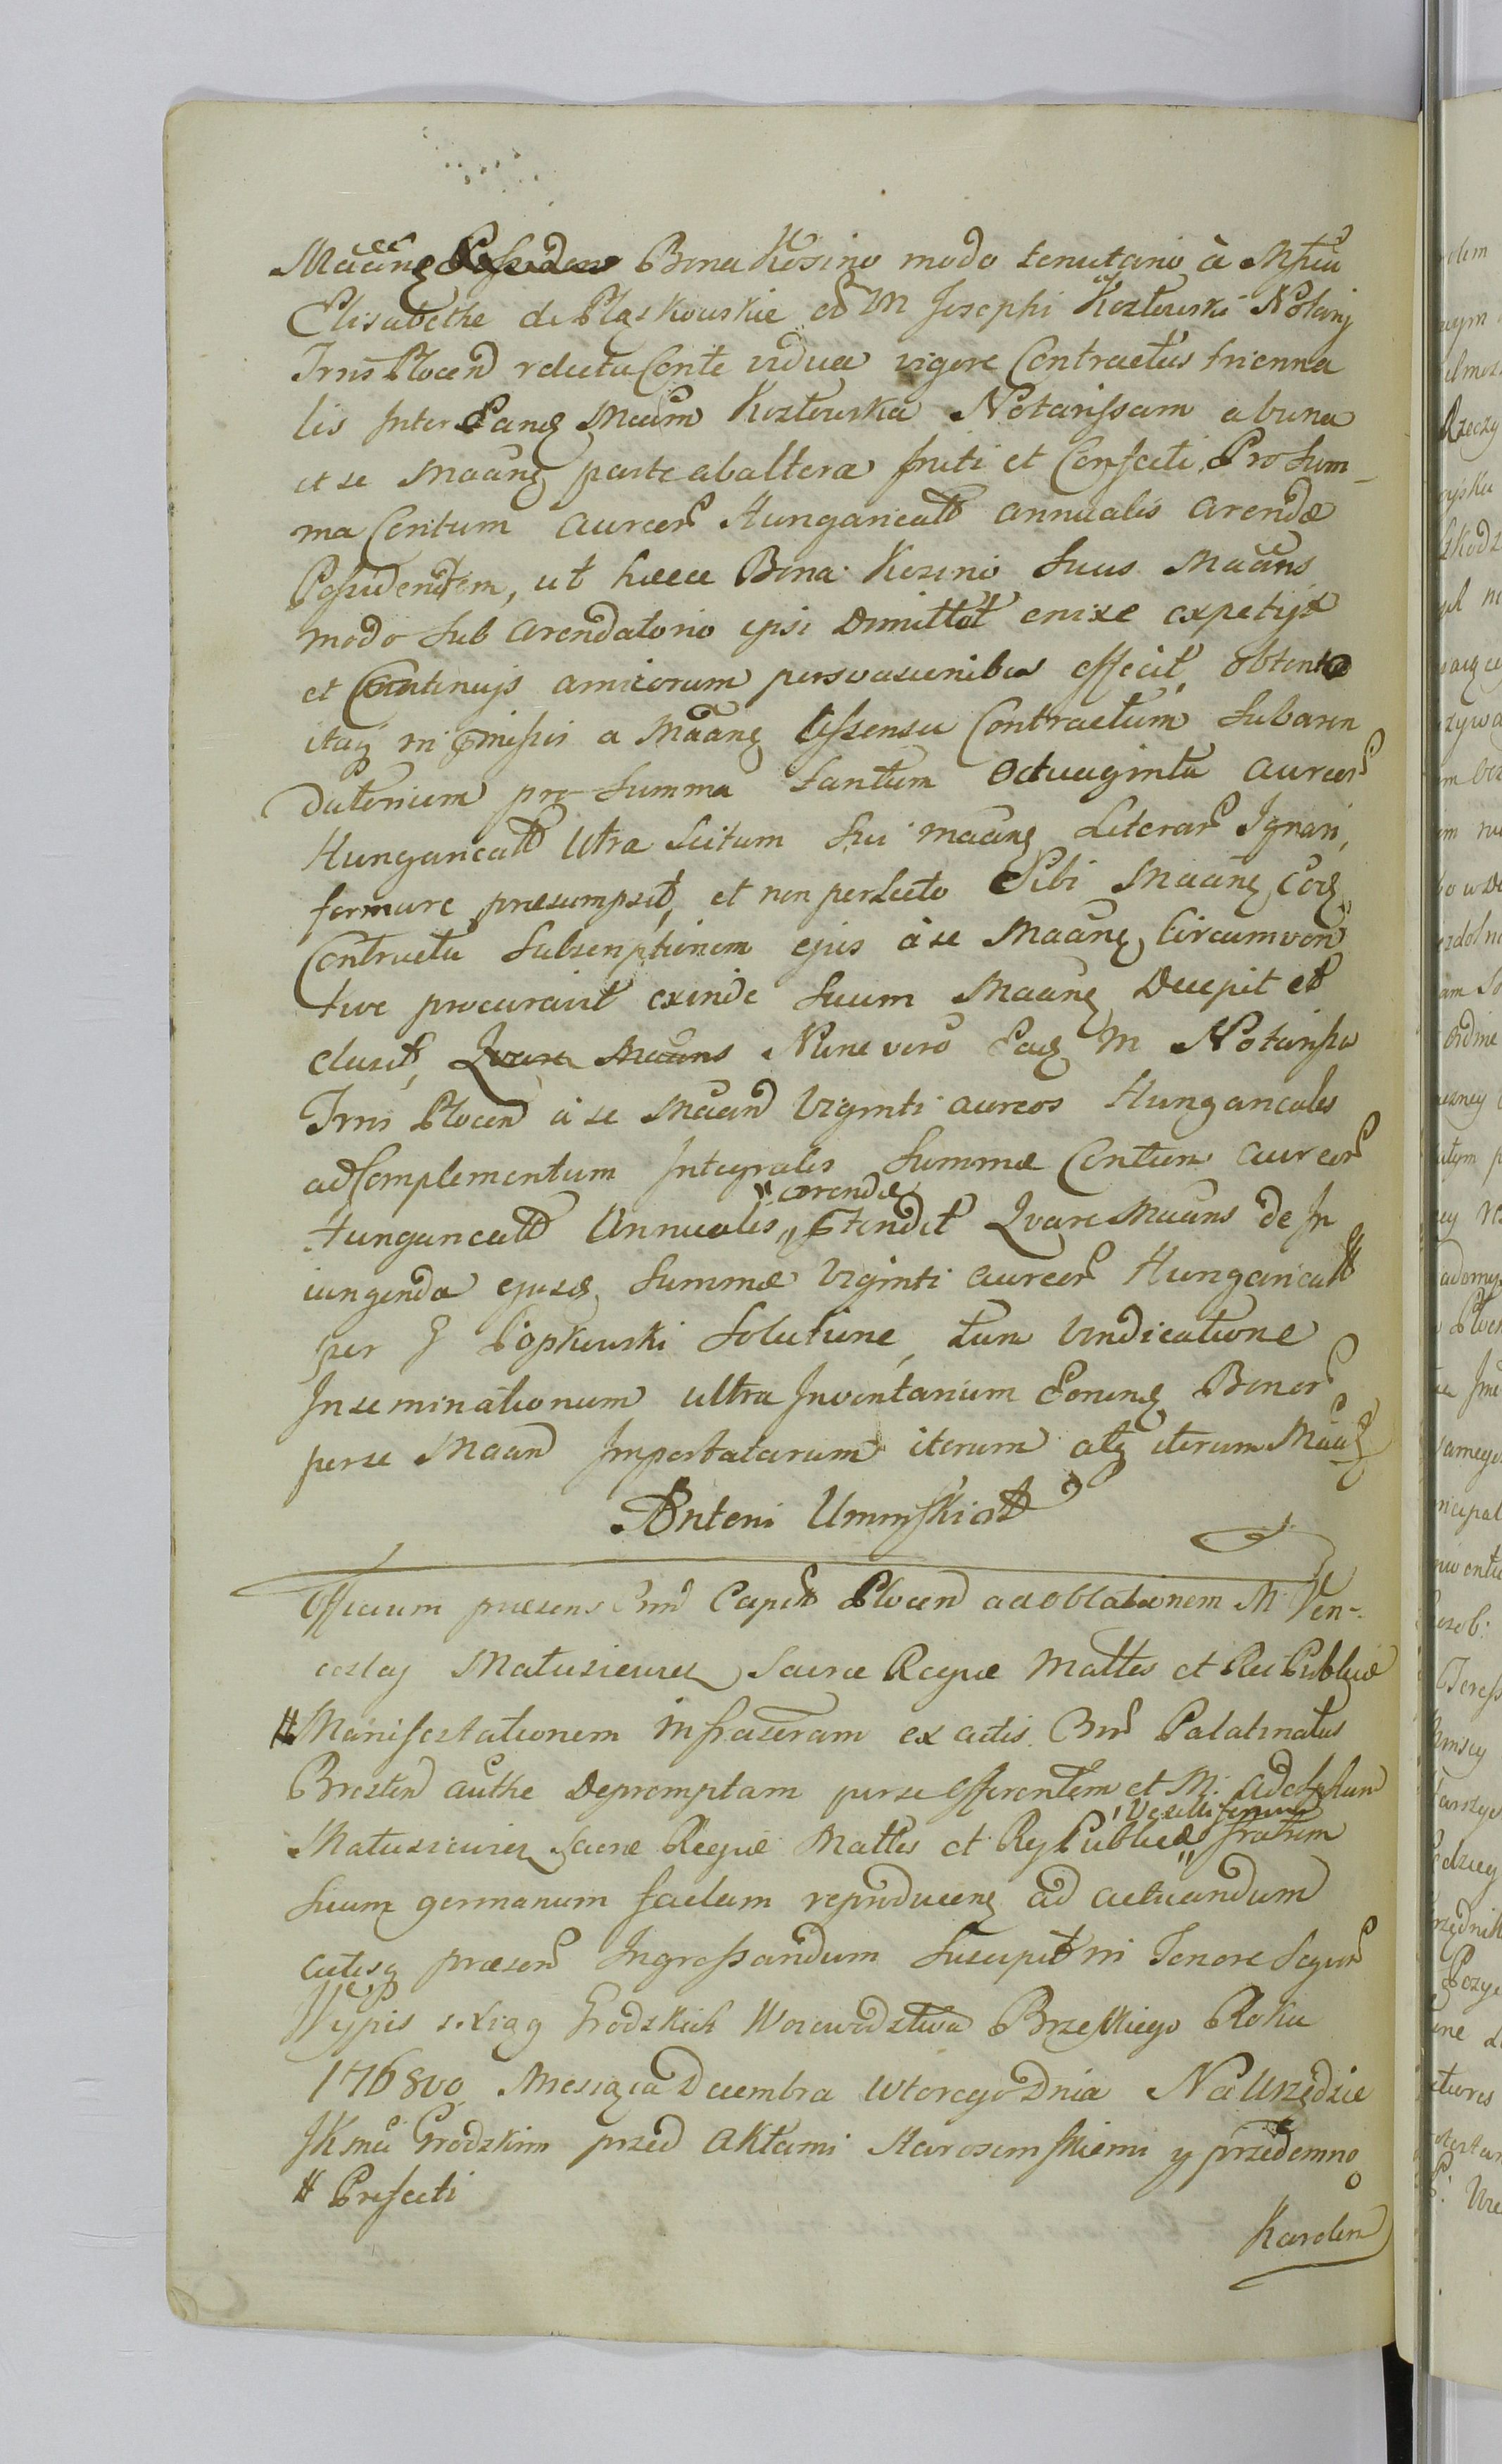 Maãnẽ Bona Kosino modo tenutario à Mfica
Elisabethe de Pląskowskie olim M Josephi Kozłowski Notarij
Trris Plocen relicta Conte vidua vigore Contractus trienna
lis Inter Eandẽ Mcam Kozłowska Notarissam ab una
et se Maanẽ parte ab altera Initi et Confecti, Pro Sum-
ma Centum Aureor Hungaricall annualis arendæ
Possidentem, ut hæcce Bona Kosino suus Maãns
modo Sub Arendatorio ipsi Dimittat enixe expetijt
et Continuijs amicorum persvasionibus effecit, obtento
itaq in pmissis a Maanẽ Assensu Contractum Subaren
datorium pro Summa tantum Octuaginta aureor
Hungaricall Ultra Scitum sui maanẽ Literar Ignari,
formare præsumpsit, et non perlecto Sibi Maanẽ Eodẽ
Contractu Subscriptionem ejus à se Maanẽ Circumven
tive procuravit exinde suum Maanẽ Decepit et
elusit, Qvare Maans Nunc vero Eadẽ M Notarissa
Trris Plocen à se Maan Viginti aureos Hungaricales
ad Complementum Integralis Summæ Centum aureor
" arendæ
Hungaricall Annualis " Ptendit Qvare Maans de In
iungenda ejusdẽ Summæ Viginti aureor Hungaricall
per G Popkowski Solutione, tum Vindicatione
Inseminationum ultra Inventarium Eorundẽ Bonor
per se Maan Importatarum iterum atq iterum Maatt
Antoni Uminski mp
Officium præsens Cmd Capit Plocen ad oblationem M Ven-
ceslaj Matusiewicz Sacræ Regiæ Mattis et Rei Publicæ
# Manifestationem infrascram ex actis Cmr Palatinatus
Bresten authe Depromptam per se offerentem et M. Adolphum
Vexilliferum
Matusiewicz Sacræ Regiæ Mattis et Rej Publicæ " fratrem
suum germanum factam reproducenẽ ad actuandum
actisq præsen Ingrossandum Suscepit in Tenore Sequn
Wypis z xiąg Grodzkich Woiewodztwa Brzeskiego Roku
1768vo Miesiąca Decembra wtorego Dnia Na Urzędzie
JKmci Grodzkim przed Aktami Staroscinskiemi y przedemno
# Prefecti
Karolem